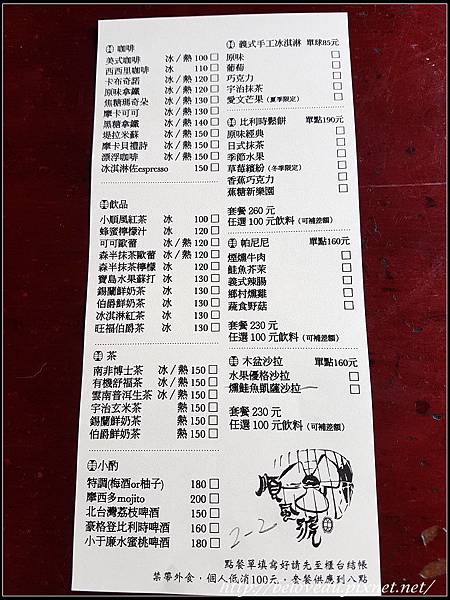 咖啡
美式咖啡 冰/熱 100
西西里咖啡 冰 110
卡布奇諾 冰/熱 120
原味拿鐵 冰/熱 120
焦糖瑪奇朵 冰/熱 130
摩卡可可 冰/熱 130
黑糖拿鐵 冰/熱 140
堤拉米蘇 冰/熱 150
摩卡貝禮詩 冰/熱 150
漂浮咖啡 冰/熱 150
冰淇淋佐espresso 150
飲品
小順風紅茶 冰 100
蜂蜜檸檬汁 冰 120
可可歐蕾 冰/熱 120
森半抹茶歐蕾 冰/熱 120
森半抹茶檸檬 冰 120
寶島水果蘇打 冰 130
錫蘭鮮奶茶 冰 130
伯爵鮮奶茶 冰 130
冰淇淋紅茶 冰 130
旺福伯爵茶 冰 130
茶
南非博士茶 冰/熱 150
有機舒福茶 冰/熱 150
雲南普洱生茶 冰/熱 150
宇治玄米茶 熱 150
錫蘭鮮奶茶 熱 150
伯爵鮮奶茶 熱 150
小酌
特調(梅酒or柚子) 180
摩西多mojito 200
北台灣荔枝啤酒 150
豪格登比利時啤酒 160
小于廉水蜜桃啤酒 180
義式手工冰淇淋 單球85元
原味
葡萄
巧克力
宇治抹茶
愛文芒果 (夏季限定)
比利時鬆餅 單點190元
原味經典
日式抹茶
季節水果
草莓繽紛 (冬季限定)
香蕉巧克力
蕉糖新樂園
套餐 260 元
任選 100 元飲料 (可補差額)
帕尼尼 單點160元
煙燻牛肉
鮭魚芥茉
義式辣腸
鄉村燻雞
蔬食野菇
套餐 230 元
任選 100 元飲料 (可補差額)
木盆沙拉 單點160元
水果優格沙拉
燻鮭魚凱薩沙拉
套餐 230 元
任選 100 元飲料 (可補差額)
順風號
2-2
點餐單填寫好請先至櫃台結帳
禁帶外食，個人低消100元，套餐供應到八點